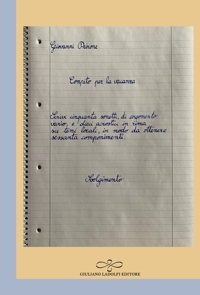 Giovanni
Compito per la vacanza
cinquanta sonetti, di argomento
vario, e dieci acrostici in rima
su temi locali, in modo da ottenere
sessanta componimenti
Svolgimento
GIULIANO LADOLFI EDITORE